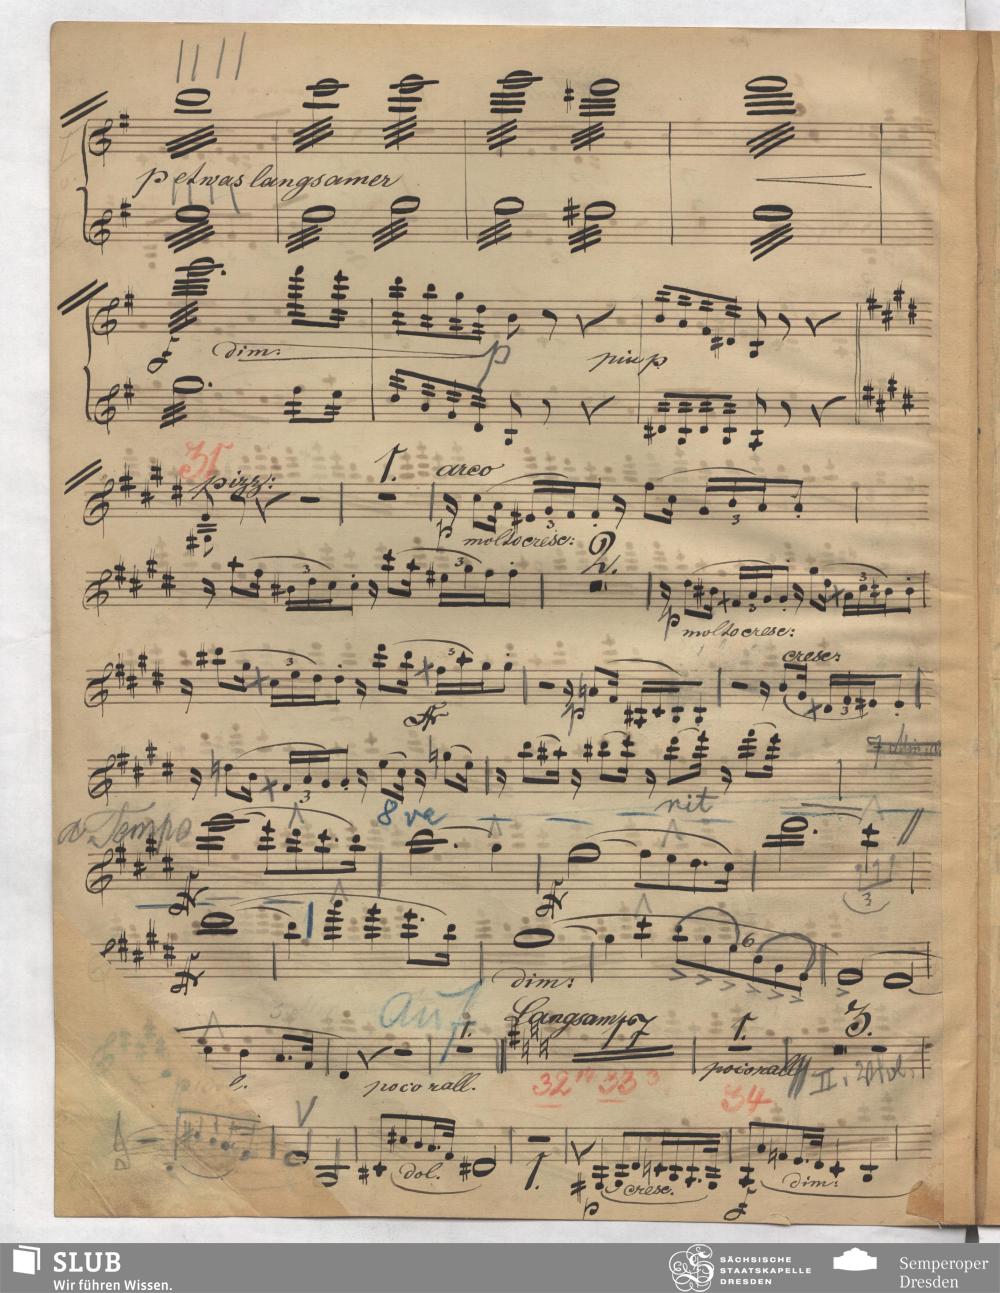 p etwas langsamer
dim. p piu p
31 pizz: 1. arco
p molto cresc:
2.
p molto cresc:
cresc
p
8va rit
a Tempo
3
dim: 6
auf
Langsam 17 1. 3.
poco rall. 1. poco rall II. Viol.
32 14 33 3 34
V
dol. 1. p cresc. dim:
SLUB
Wir führen Wissen.
SÄCHSISCHE
STAATSKAPELLE
DRESDEN
Semperoper
Dresden